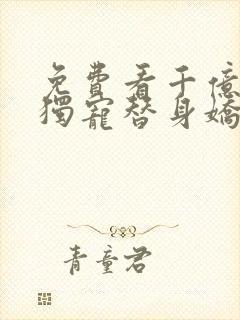 免費看千億
獨寵替身嬌
青童君